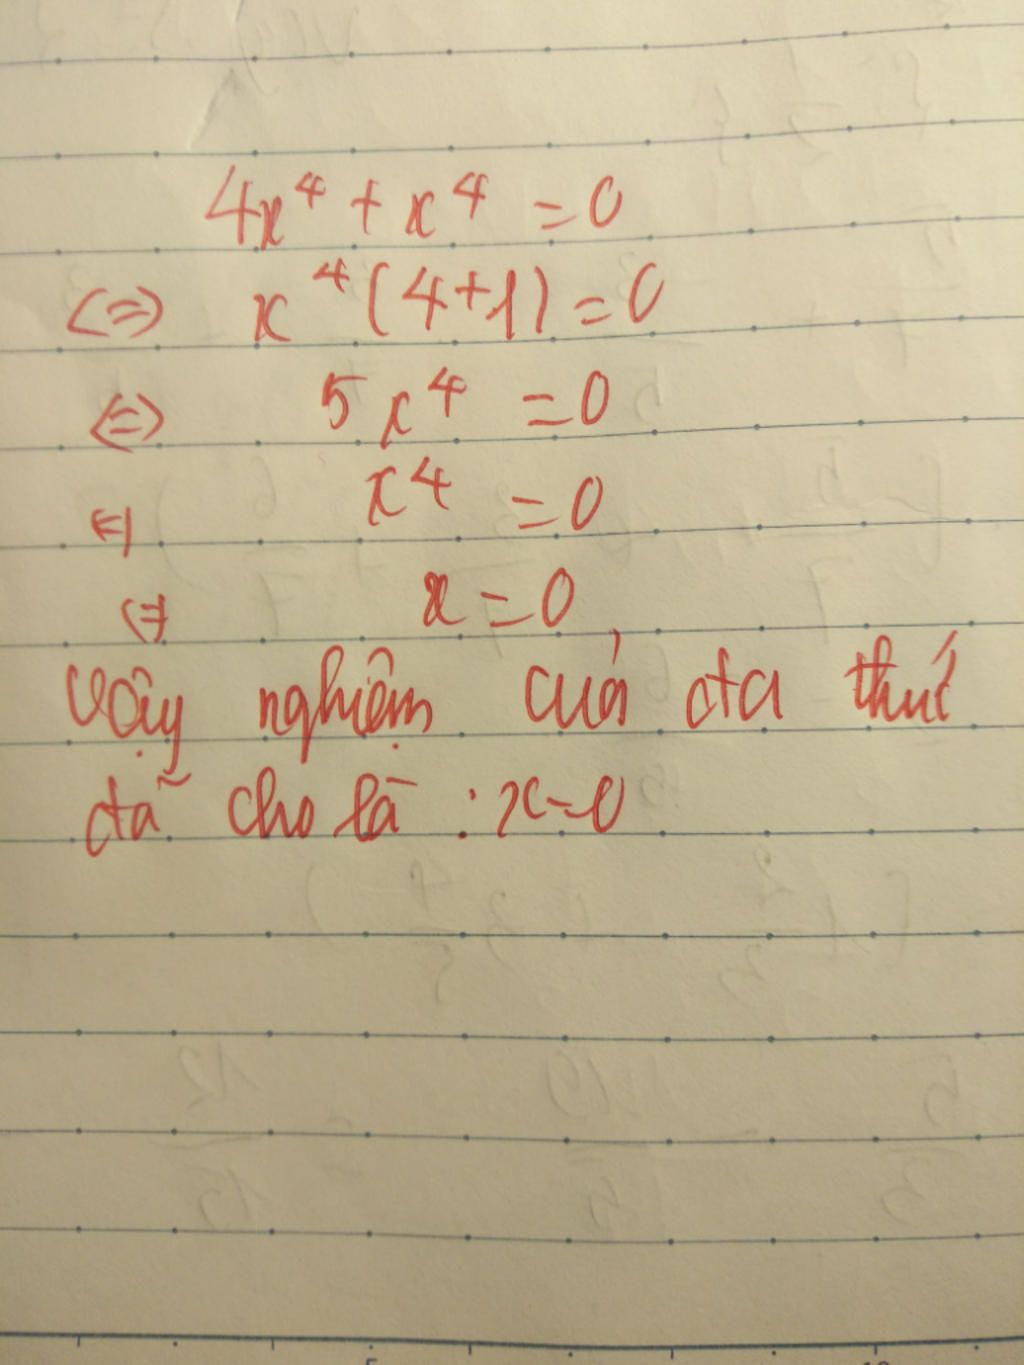 4x⁴ + x⁴ = 0
<=> x⁴(4+1) = 0
<=> 5x⁴ = 0
<=> x⁴ = 0
<=> x = 0
Vậy nghiệm của đa thức
đã cho là : x = 0